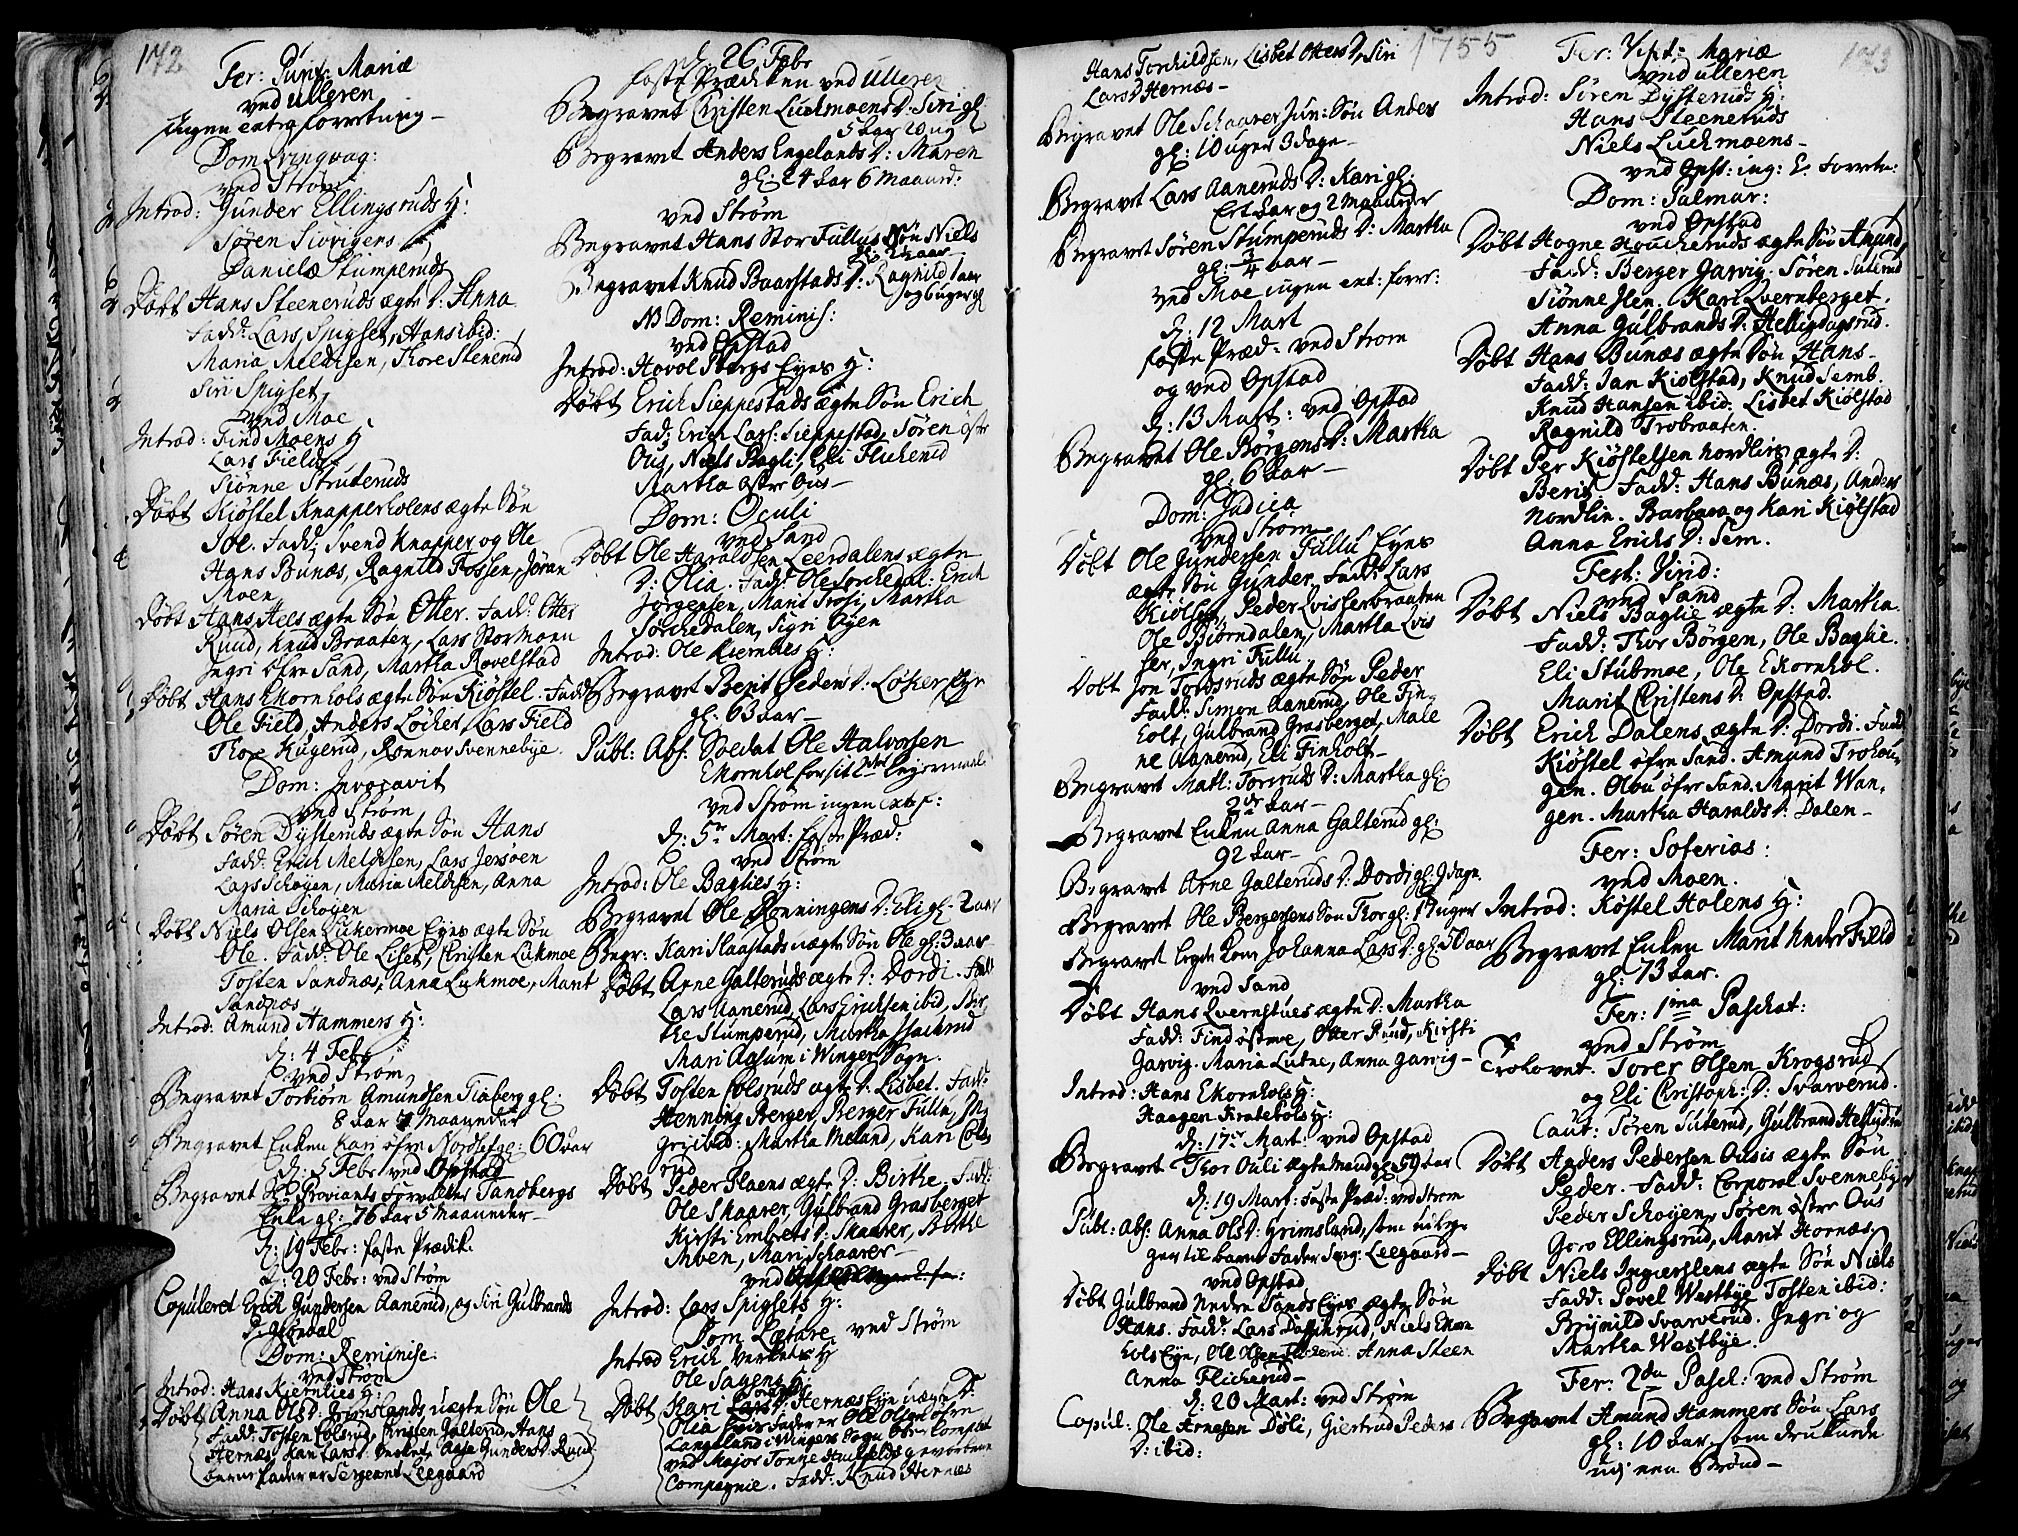 172
Fer: Purif: Mariæ
ved Ulleren
ingen extra forretning
Dom Qvinqvag:
ved Strøm
Introd: Gunder Ellingsruds H:
Søren Sivrigens
Daniels Stumperuds
Døbt Hans Steeneruds ægte D: Anna
Fadd: Lars Spigset, Hans ibid:
Maria Meldisen, Thore Stenerud
Siri Spigset
ved Moe
Introd: Find Moens H
Lars Fields
Siønne Struteruds
Døbt Kiøstel Knapperholens ægte Søn
Joe. Fadd: Svend Knapper og Ole
Hans Bunæs, Ragnild Fossen, Jøran
Moen
Døbt Hans Aels ægte Søn Otter. Fadd: Otter
Ruud, Knud Braaten, Lars Stormoen
Ingri øfre Sand, Martha Rovelstad
Døbt Hans Ekornhols ægte Søn Kiøstel. Fadd
Ole Field, Anders Løcker, Lars Field
Thore Kugerud, Rønnov Svennebye.
Dom: Invocavit
ved Strøm
Døbt Søren Dysteruds ægte Søn Hans
Fadd: Erich Meldisen, Lars Jersøen
Lars Schøyen, Maria Meldisen, Anna
Maria Schøyen
Døbt Niels Olsen Luckermoe Eyes ægte Søn
Ole. Fadd: Ole Liset, Christen Lukmoe
Tosten Sandnæs, Anna Lukmoe, Marit
Sandnæs
Introd: Amund Hammers H:
d: 4 Febr
ved Strøm
Begravet Torbiørn Amundsen Tiaberg gl:
8 aar 7 Maaneder
Begravet Enken Kari øfre Nordset gl: 60 aar
d: 5 Febr ved Opstad
Begravet Hr Proviants Forvalter Tandbergs
Enke gl: 76 aar 5 Maaneder
d: 19 Febr: faste Prædik.
d: 20 Febr: ved Strøm
Copuleret Erich Gundersen Aanerud, og Siri Gulbrands
D: Glørdal
Dom: Reminise:
ved Strøm
Introd: Hans Kiernlies H:
Døbt Anna Ols D: Grimslands uægte Søn Ole
Fadd: Tosten Colsrud, Christen Galterud, Hans
Hernæs, Kari Lars D: Verket, Agse Gunders D: Ruud
barnefader er Sergeant Leegaard
d. 26 Febr
faste Prædiken ved Ulleren
Begravet Christen Luckmoens D: Siri gl:
5 aar 20 ug
Begravet Anders Engelands D: Maren
gl: 24 aar 6 Maaned:
ved Strøm
Begravet Hans Stor Tullus Søn Niels
Begravet Knud Baarstads D: Ragnild 1 aar
og 6 uger gl
NB Dom: Reminis:
ved Opstad
Introd: Hovol Bergs Eyes H:
Døbt Erich Sieppestads ægte Søn Erich
Fad: Erich Lars: Sieppestad, Søren østr
Ous, Niels Bagli, Eli Flickerud
Martha østre Ous
Dom: Oculi
ved Sand
Døbt Ole Haraldsen Leerdalens ægte
D: Olia. Fadd: Ole Sorchedal: Erich
Jørgensen, Marit Trosi, Martha
Sorchedalen, Sigri Øyen
Introd: Ole Kiernlies H:
Begravet Berit Peders D: Løker Eye
gl: 63 aar
Publ: Abs. Soldat Ole Halvorsen
Ekornhol for sit 2det Leyermaal
ved Strøm ingen extr f:
d: 5te Mart: faste Præd:
ved Strøm
Introd: Ole Baglies H:
Begravet Ole Rønningens D: Eli gl: 2 aar
Begr: Kari Slaastads uægte Søn Ole gl: 3 aar
Døbt Arne Galteruds ægte D: Dordi. Fadd
Lars Aanerud, Lars Erichsen ibid, Bir
the Stumperud, Martha Hackrud
Mari Aasum i Winger Sogn.
Døbt Tosten Colsruds ægte D: Lisbet. Fadd:
Henning Berger, Berger Tullu, In
gri ibid: Martha Meland, Kari Cols
rud
Døbt Peder Floens ægte D: Birthe. Fadd:
Ole Skaarer, Gulbrand Grasberget
Kirsti Embrets D: Skaarer, Birthe
Moen, Mari Schaarer
ved
Introd: Lars Spigsets H:
Dom Lætare ved Strøm
Introd Erich Verkets H
Ole Sagens H:
Døbt Kari Lars D: Hernæs Eye uægte D:
Olia hvis Fader er Ole Olsen øfre
Langeland i Wingers Sogn
ved Major Tonne Huitfelds gevorbene
Compagnie. Fadd: Knud Hernæs
1755
Hans Torkildsen, Lisbet Otters D: Siri
Lars D Hernæs
Begravet Ole Schaarer Jun: Søn Anders
gl: 10 uger 3 dage
Begravet Lars Aaneruds D: Kari gl:
Et aar og 2 Maaneder
Begravet Søren Stumperuds D: Martha
gl: 3/4 aar
ved Moe ingen ext: forr:
d: 12 Mart
faste Præd: ved Strøm
og ved Opstad
d: 13 Mart: ved Opstad
Begravet Ole Børgens D: Martha
gl: 6 aar
Dom: Judica
ved Strøm
Døbt Ole Gundersen Tullu Eyes
ægte Søn Gunder. Fadd: Lars
Kiølset, Peder Qvisterbraaten
Ole Biørndalen, Martha Qvis
ter, Ingri Tullu
Døbt Jon Tordsruds ægte Søn Peder
Fadd: Simon Aanerud, Ole Fin-
holt, Gulbrand Grasberget, Male
ne Aanerud, Eli Finholt
Begravet Matl: Toreruds D: Martha gl:
2de aar
Begravet Enken Anna Galterud gl:
92 aar
Begravet Arne Galteruds D: Dordi gl: 9 dage.
Begravet Ole Bergersens Søn Thor gl: 17 uger
Begravet Legds Kone Johanna Lars D: gl: 50 aar
ved Sand
Døbt Hans Qvernstues ægte D: Martha
Fadd: Find østmoe, Otter Ruud, Kirsti
Garvig. Maria Lutne, Anna Garvig
Introd: Hans Ekornhols H:
Haagen Kratebøls H:
d: 17de Mart: ved Opstad
Begravet Thor Ouli ægte mand gl: 59 aar
d: 19 Mart: Faste Præd: ved Strøm
Publ: Abs: Anna Ols D: Grimsland, som udleg
ger til barne Fader Serg: Leegaard
ved Opstad
Døbt Gulbrand Nedre Sands Eyes ægte Søn
Hans. Fadd: Lars Dassherud, Niels Ekorn
hols Eye, Ole Olsen Flickerud. Anna Steen
Anna Flickerud
d: 20 Mart: ved Strøm
Copul: Ole Arnesen Døli, Giertrud Peders
D: ibid:
173
Fer: Visit: Mariæ
ved Ulleren
Introd: Søren Dysteruds H:
Hans Steeneruds
Niels Luckmoens
ved Opst: ing: E. Forretn:
Dom: Palmar:
ved Opstad
Døbt Hogne Houckeruds ægte Søn Amund,
Fadd: Berger Garvig. Søren Suterud
Siønne Jsen. Kari Qvernberget,
Anna Gulbrands D: Helligdagsrud.
Døbt Hans Bunæs ægte Søn Hans
Fadd: Jan Kiølstad, Knud Semb.
Knud Hansen ibid. Lisbet Kiølstad
Ragnild Trobraaten.
Døbt Per Kiøstelsen nordlis ægte D:
Berit. Fadd: Hans Bunæs, Anders
Nordlie. Barbara og Kari Kiølstad
Anna Erichs D: Sem.
Fest: Virid:
ved Sand
Døbt Niels Baglie ægte D: Martha.
Fadd: Thor Børgen, Ole Baglie.
Eli Stubmoe, Ole Ekornhol.
Marit Christens D: Opstad.
Døbt Erich Dalens ægte D: Dordi. Fadd
Kiøstel øfre Sand. Amund Trohou-
gen. Olou øfre Sand. Marit Wan-
gen. Martha Haralds D: Dalen
Fer: Soterias:
ved Moen.
Introd: Køstel Holens H:
Begravet Enken Marit Nedre Field
gl: 73 aar.
Fer: 1ma Paschat:
ved Strøm
Trolovet. Torer Olsen Krogsrud
og Eli Christoph: D: Svarverud.
Caut: Søren Suterud, Gulbrand
Døbt Anders Pedersen Ousis ægte Søn
Peder. Fadd: Corporal Svennebye
Peder Schøyen, Søren øster Ous
Goro Ellingsrud, Marit Hornæs,
Døbt Niels Ingierslens ægte Søn Niels
Fadd: Povel Westbye, Tosten ibid:
Brynild Svarverud. Ingri og
Martha Westbye.
Fer: 2da Pasch: ved Strøm
Begravet Amund Hammers Søn Lars
gl: 10 aar, som druknede
udj een Brønd